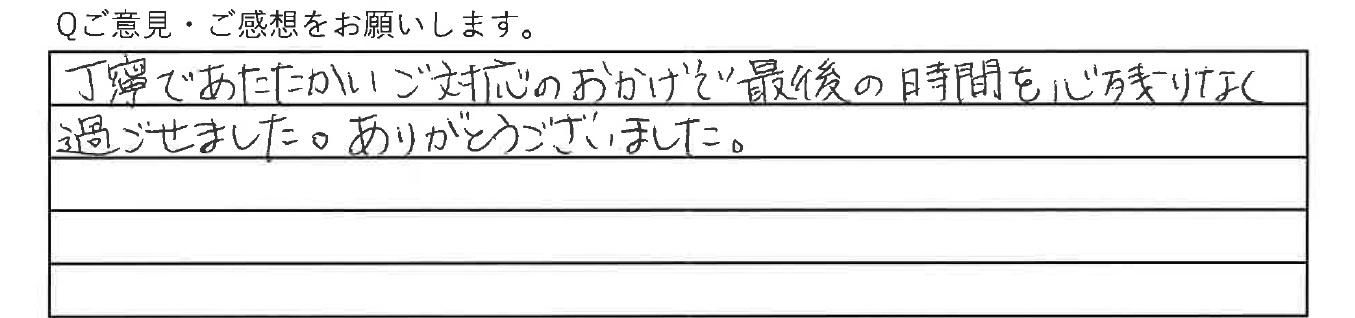 Qご意見・ご感想をお願いします。
丁寧であたたかいご対応のおかげで最後の時間を心残りなく
過ごせました。ありがとうございました。